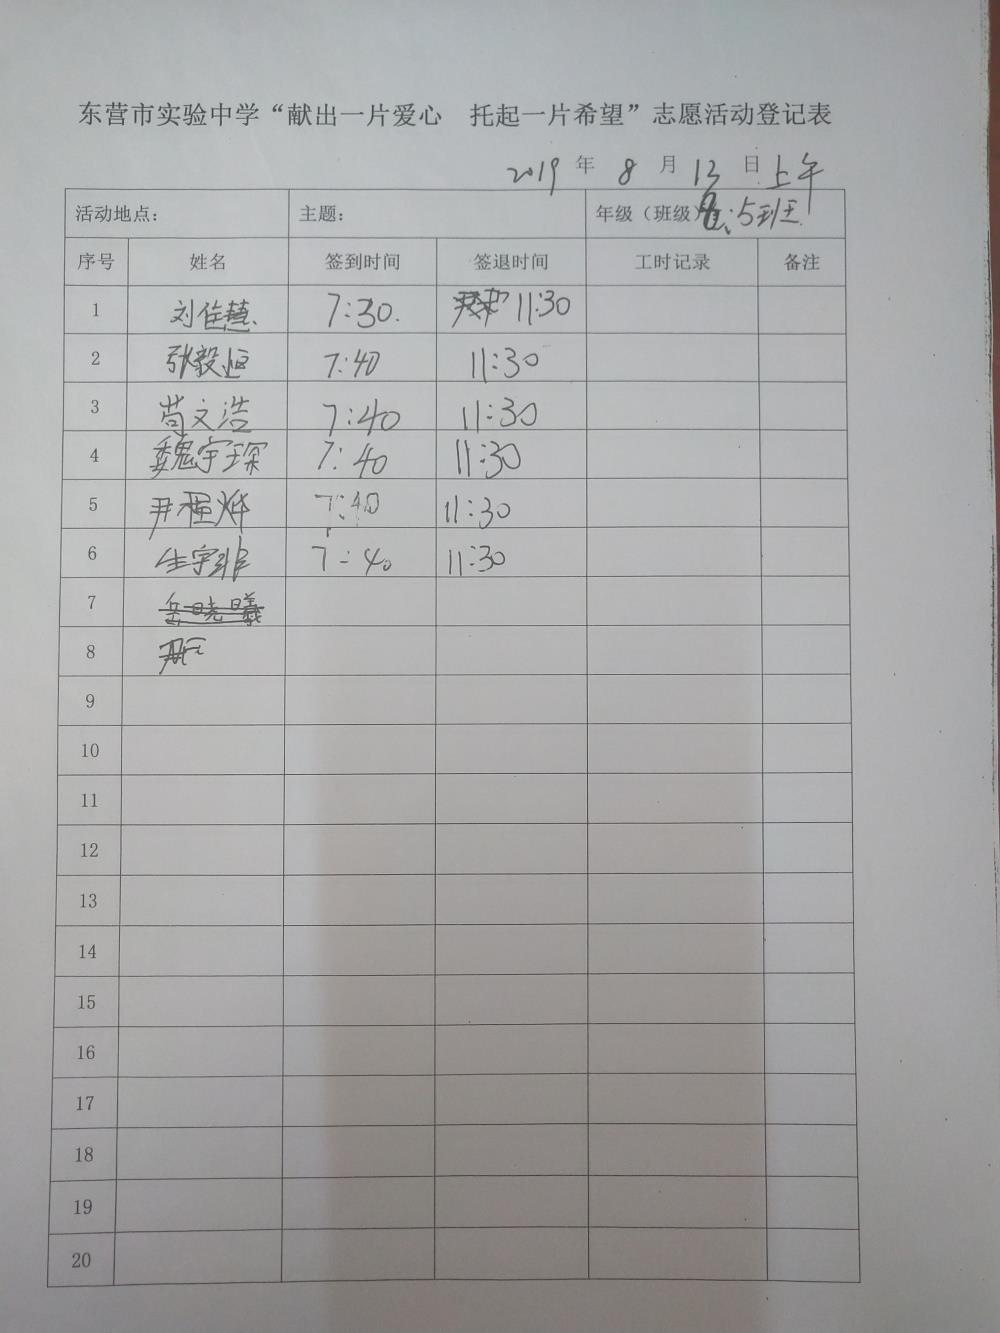 东营市实验中学“献出一片爱心 托起一片希望”志愿活动登记表
2019 年 8 月 13 日 上午
活动地点： 主题： 年级（班级） 5班
序号 姓名 签到时间 签退时间 工时记录 备注
1 刘佳慧. 7:30. 11:30
2 张毅恒 7:40 11:30
3 苟文浩 7:40 11:30
4 魏宇琛 7:40 11:30
5 尹程烨 7:40 11:30
6 生宇非 7:40 11:30
7 岳晓曦
8
9
10
11
12
13
14
15
16
17
18
19
20